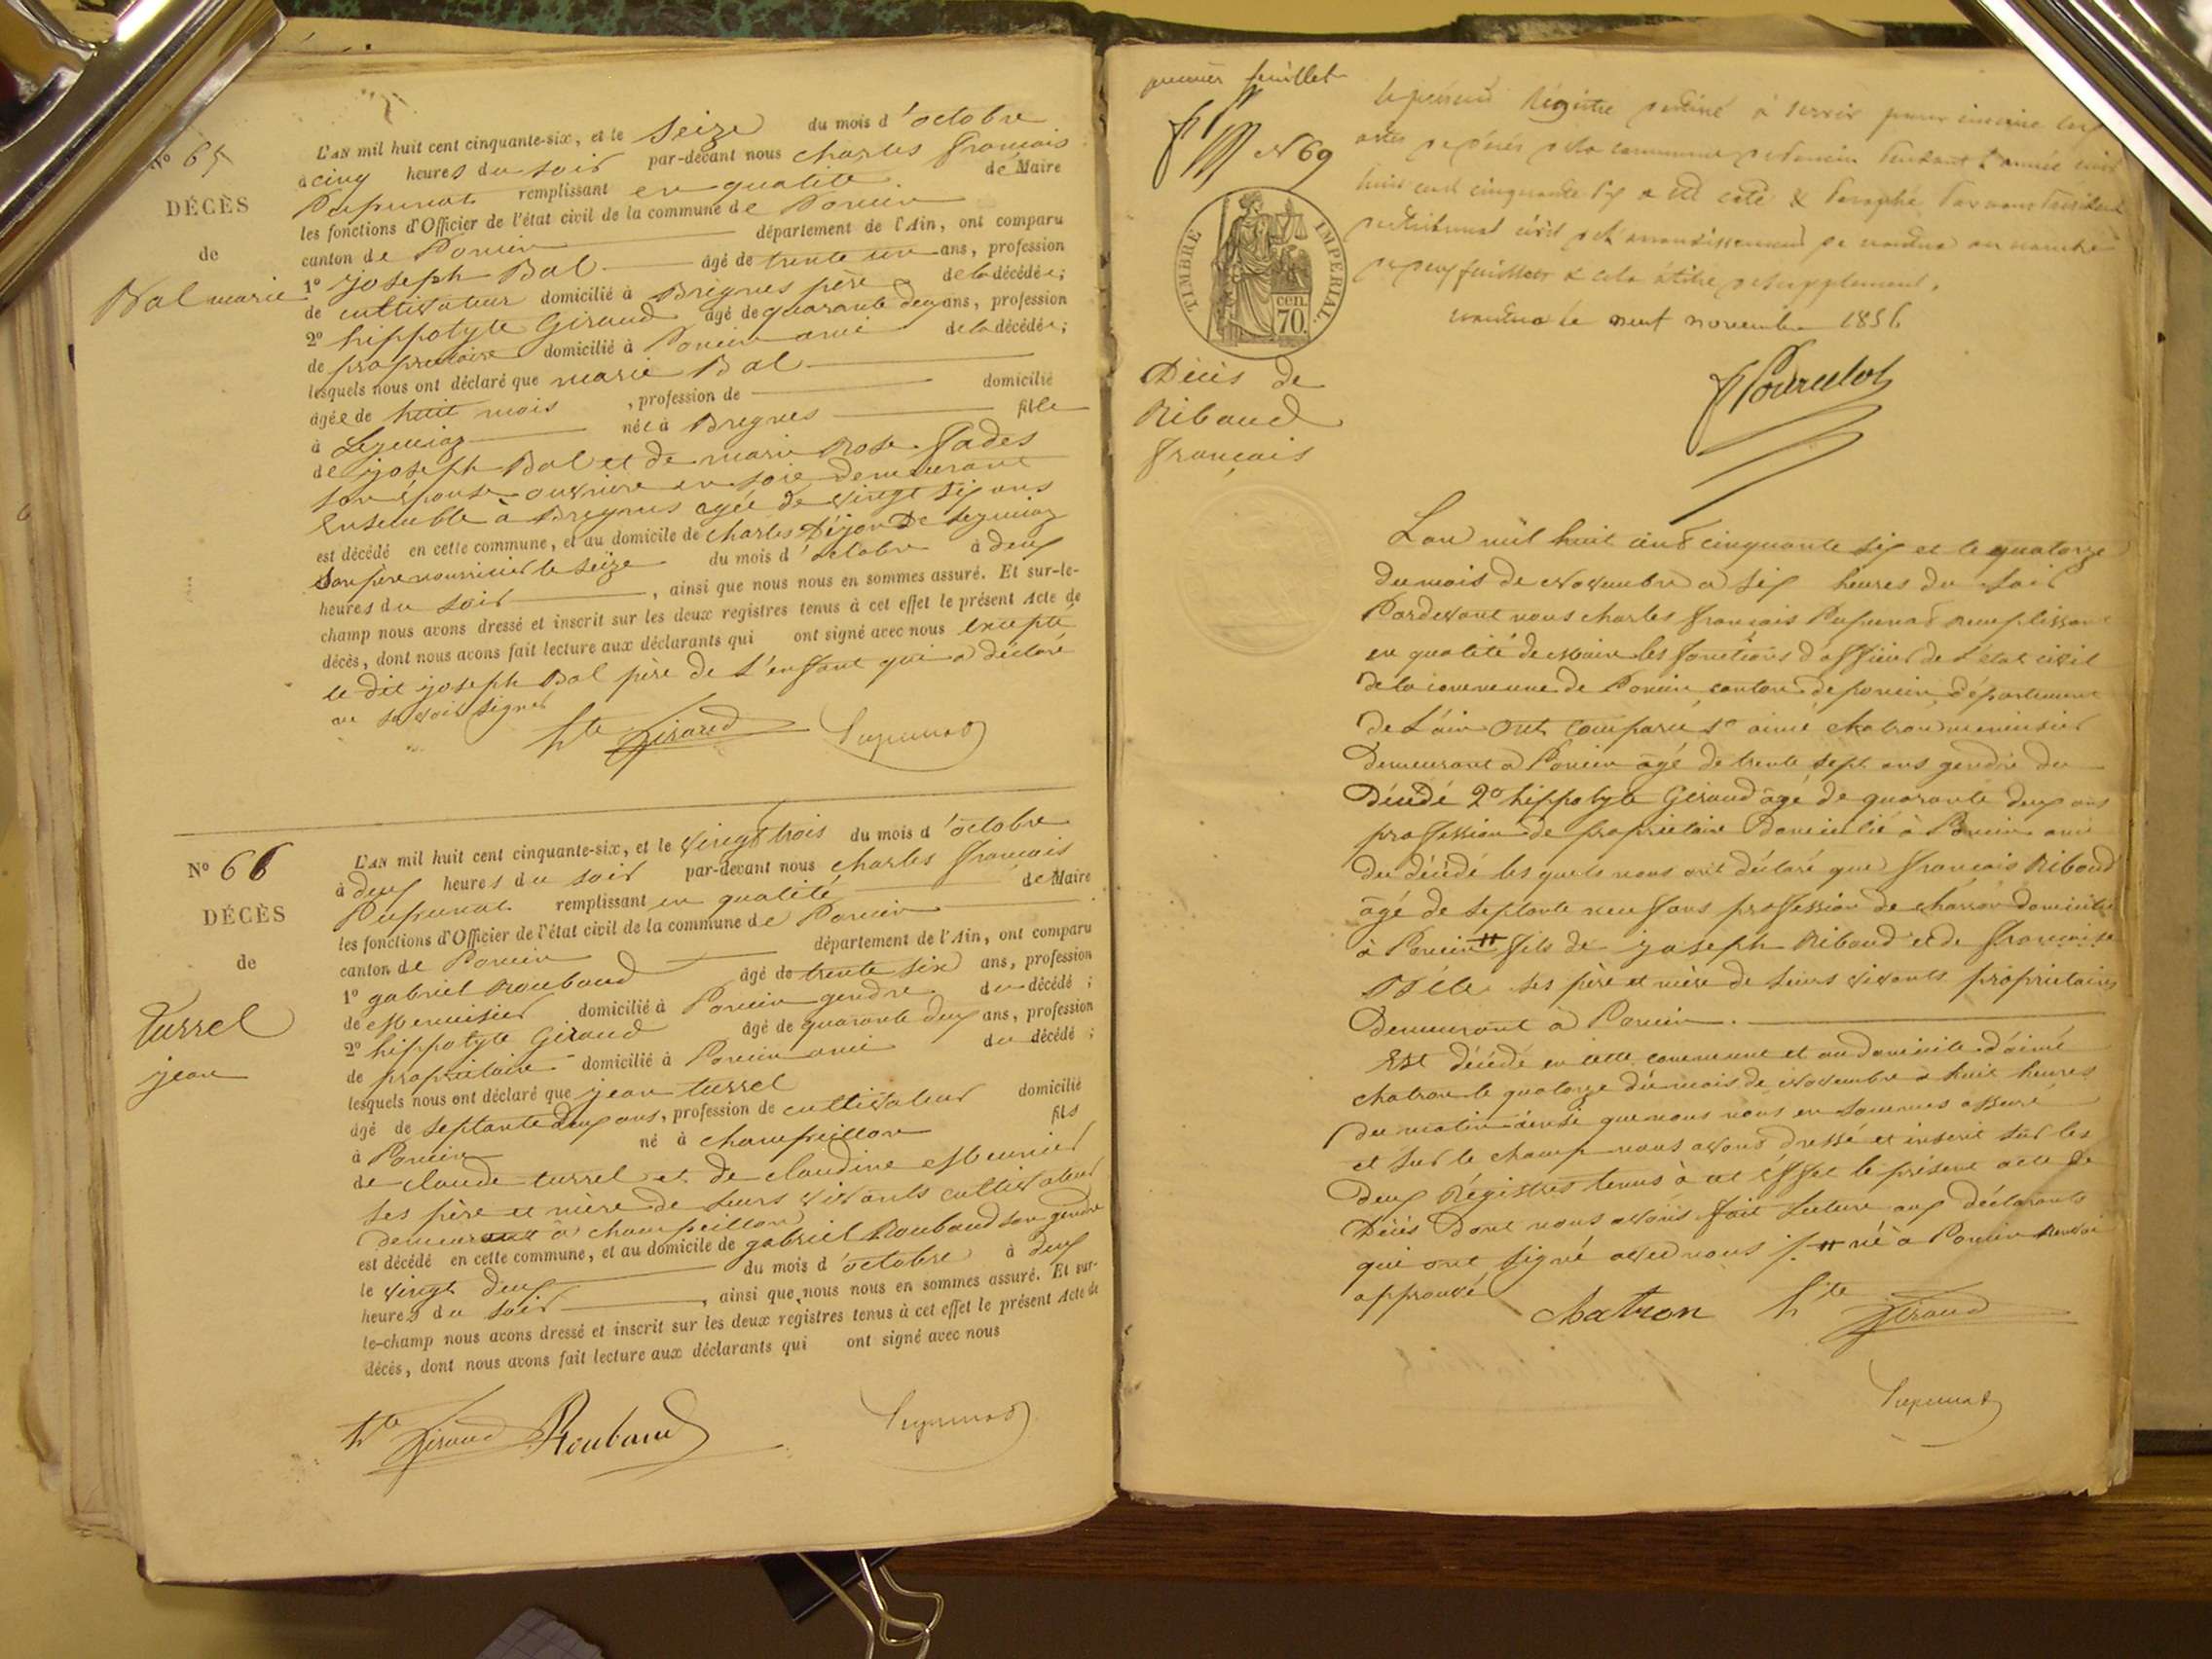 N° 65
DÉCÈS
de
Bal marie
L'AN mil huit cent cinquante-six, et le seize du mois d'octobre
à cinq heures du soir par-devant nous charles françois
Pupunat remplissant en qualité de Maire
les fonctions d'Officier de l'état civil de la commune de Poncin
canton de Poncin département de l'Ain, ont comparu
1° joseph Bal âgé de trente un ans, profession
de cultivateur domicilié à Breignes père de la décédée;
2° hippolyte Giraud âgé de quarante deux ans, profession
de propriétaire domicilié à Poncin ami de la décédée;
lesquels nous ont déclaré que marie Bal
âgée de huit mois, profession de domicilié
à Leymiaz née à Breignes fille
de joseph Bal et de marie Rose
son épouse ouvrière en soie demeurant
ensemble à Breignes agée de vingt six ans
est décédé en cette commune, et au domicile de charles de Leymiaz
son père nourricier le seize du mois d'octobre à deux
heures du soir, ainsi que nous nous en sommes assuré. Et sur-le-
champ nous avons dressé et inscrit sur les deux registres tenus à cet effet le présent Acte de
décès, dont nous avons fait lecture aux déclarants qui ont signé avec nous excepté
le dit joseph Bal père de l'enfant qui a déclaré
ne savoir signer
hte Giraud Pupunat
N° 66
DÉCÈS
de
Turrel
jean
L'AN mil huit cent cinquante-six, et le vingt trois du mois d'octobre
à deux heures du soir par-devant nous charles françois
Pupunat remplissant en qualité de Maire
les fonctions d'Officier de l'état civil de la commune de Poncin
canton de Poncin département de l'Ain, ont comparu
1° gabriel Roubaud âgé de trente six ans, profession
de Menuisier domicilié à Poncin gendre du décédé;
2° hippolyte Giraud âgé de quarante deux ans, profession
de propriétaire domicilié à Poncin ami du décédé;
lesquels nous ont déclaré que jean turrel
âgé de septante deux ans, profession de cultivateur domicilié
à Poncin né à champeillon fils
de claude turrel et de claudine Meunier
ses père et mère de leurs vivants cultivateur
demeurant à champeillon
est décédé en cette commune, et au domicile de gabriel Roubaud son gendre
le vingt deux du mois d'octobre à deux
heures du soir, ainsi que nous nous en sommes assuré. Et sur-
le-champ nous avons dressé et inscrit sur les deux registres tenus à cet effet le présent Acte de
décès, dont nous avons fait lecture aux déclarants qui ont signé avec nous
hte Giraud Roubaud Pupunat
premier feuillet
N 69
TIMBRE IMPERIAL.
cen.
70.
Décès de
Ribaud
françois
le présent Régistre destiné à servir pour inscrire les
actes de décès de la commune de Poncin pendant l'année mil
huit cent cinquante six a été coté & paraphé par nous Président
du tribunal civil de l'arrondissement de nantua au nombre
de deux feuillets & cela à titre de supplément.
nantua le neuf novembre 1856
L'an mil huit cent cinquante six et le quatorze
du mois de Novembre à six heures du soir
Pardevant nous charles françois Pupunat remplissant
en qualité de Maire les fonctions d'officier de l'état civil
de la commune de Poncin canton de poncin département
de l'ain ont comparu 1° aimé chatron menuisier
Demeurant à Poncin âgé de trente sept ans gendre du
Décédé 2° hippolyte Giraud âgé de quarante deux ans
profession de propriétaire Domicilié à Poncin ami
du décédé les quels nous ont déclaré que françois Ribaud
âgé de septante neuf ans profession de charron domicilié
à Poncin # fils de joseph Ribaud et de françoise
ses père et mère de leurs vivants propriétaires
Demeurant à Poncin.
Est décédé en cette commune et au domicile d'aimé
chatron le quatorze du mois de Novembre à huit heures
du matin ainsi que nous nous en sommes assuré
et sur le champ nous avons dressé et inscrit sur les
deux Régistres tenus à cet effet le présent acte de
Décès Dont nous avons fait lecture aux déclarants
qui ont signé avec nous /. # né à Poncin renvoi
approuvé
chatron hte Giraud
Pupunat